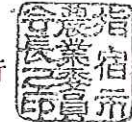 指宿市
農業委員
会長之印